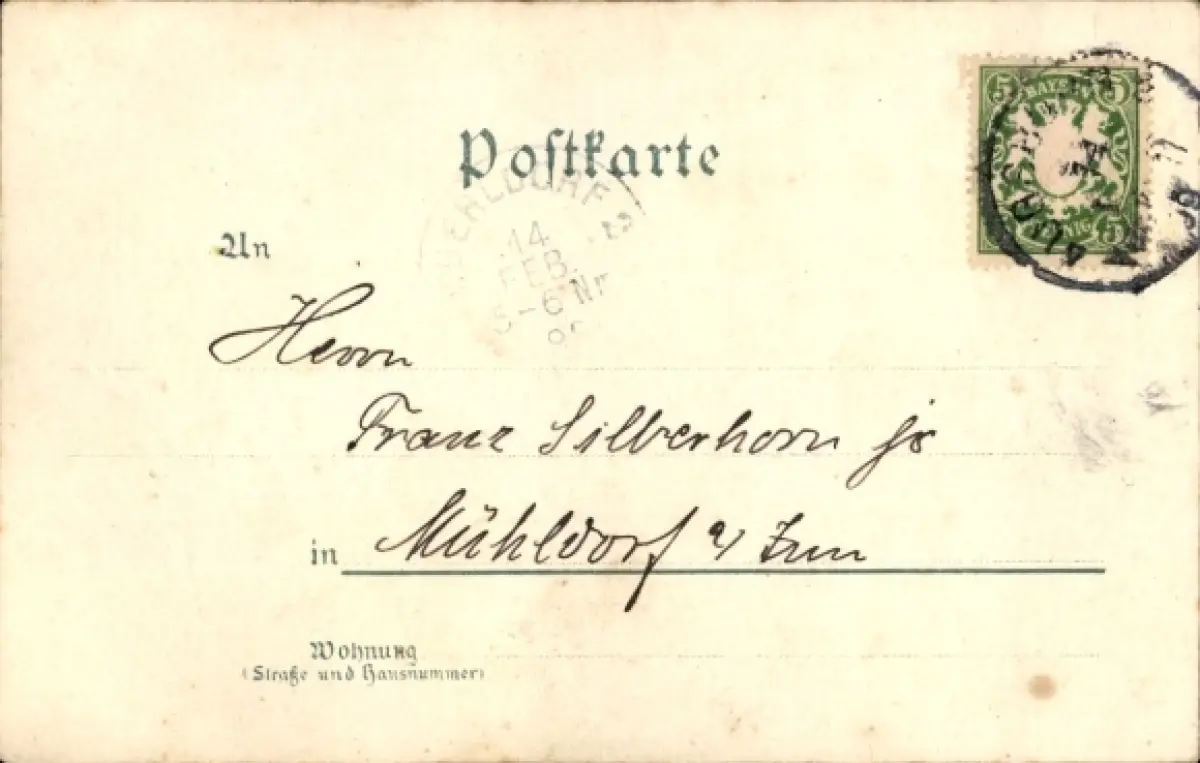 Postkarte
5 BAYERN 5
MUEHLDORF
14
FEB.
5-6 Nm
An
Herrn
Franz Silberhorn jr
in Mühldorf a/ Inn
Wohnung
(Straße und Hausnummer)